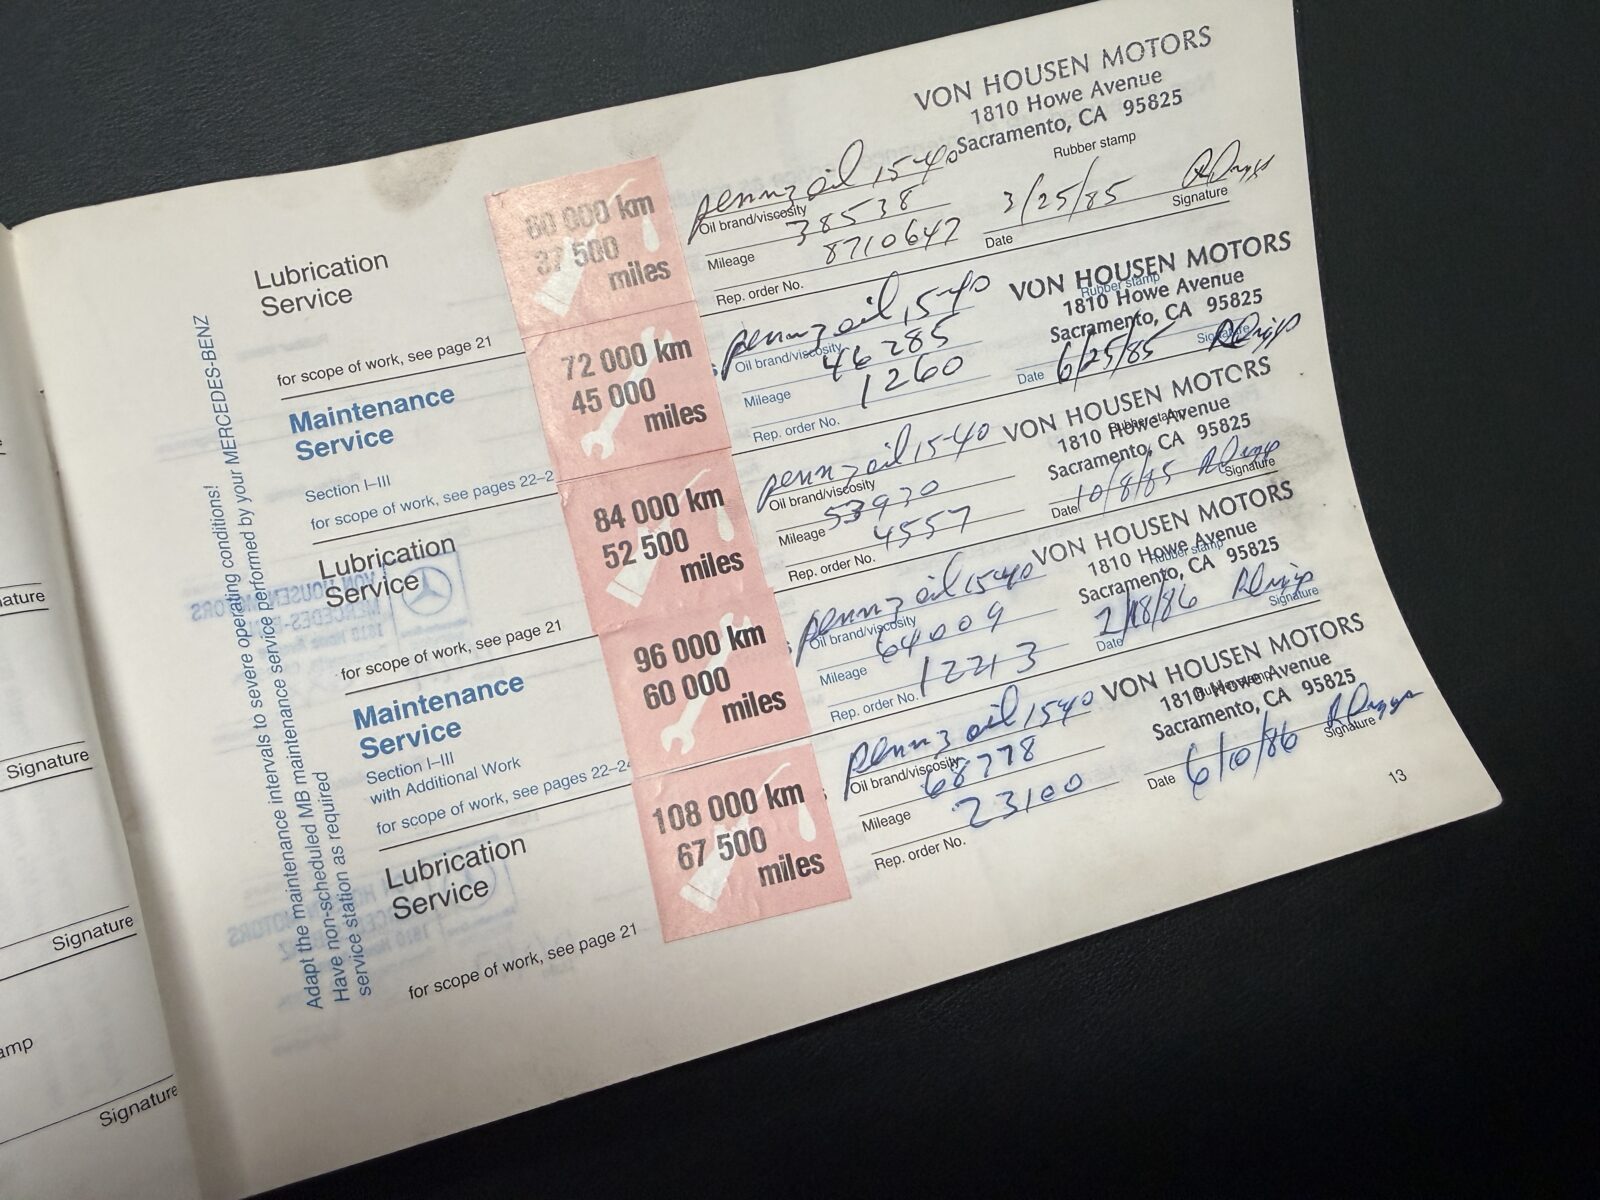 Adapt the maintenance intervals to severe operating conditions!
Have non-scheduled MB maintenance service performed by your MERCEDES-BENZ
service station as required
Lubrication
Service
for scope of work, see page 21
60 000 km
37 500
miles
pennzoil 15-40
Oil brand/viscosity
38538
Mileage
8710647
Rep. order No.
VON HOUSEN MOTORS
1810 Howe Avenue
Sacramento, CA 95825
Rubber stamp
3/25/85
Date
Signature
Maintenance
Service
Section I–III
for scope of work, see pages 22–2
72 000 km
45 000
miles
pennzoil 15-40
Oil brand/viscosity
46285
Mileage
1260
Rep. order No.
VON HOUSEN MOTORS
Rubber stamp
1810 Howe Avenue
Sacramento, CA 95825
6/25/85
Date
Signature
Lubrication
Service
for scope of work, see page 21
84 000 km
52 500
miles
pennzoil 15-40
Oil brand/viscosity
53930
Mileage
4557
Rep. order No.
VON HOUSEN MOTORS
Rubber stamp
1810 Howe Avenue
Sacramento, CA 95825
10/8/85
Date
Signature
Maintenance
Service
Section I–III
with Additional Work
for scope of work, see pages 22–24
96 000 km
60 000
miles
pennzoil 1540
Oil brand/viscosity
64009
Mileage
12213
Rep. order No.
VON HOUSEN MOTORS
Rubber stamp
1810 Howe Avenue
Sacramento, CA 95825
2/18/86
Date
Signature
Lubrication
Service
for scope of work, see page 21
108 000 km
67 500
miles
pennzoil 1540
Oil brand/viscosity
68778
Mileage
23100
Rep. order No.
VON HOUSEN MOTORS
Rubber stamp
1810 Howe Avenue
Sacramento, CA 95825
6/10/86
Date
Signature
13
ature
Signature
Signature
amp
Signature